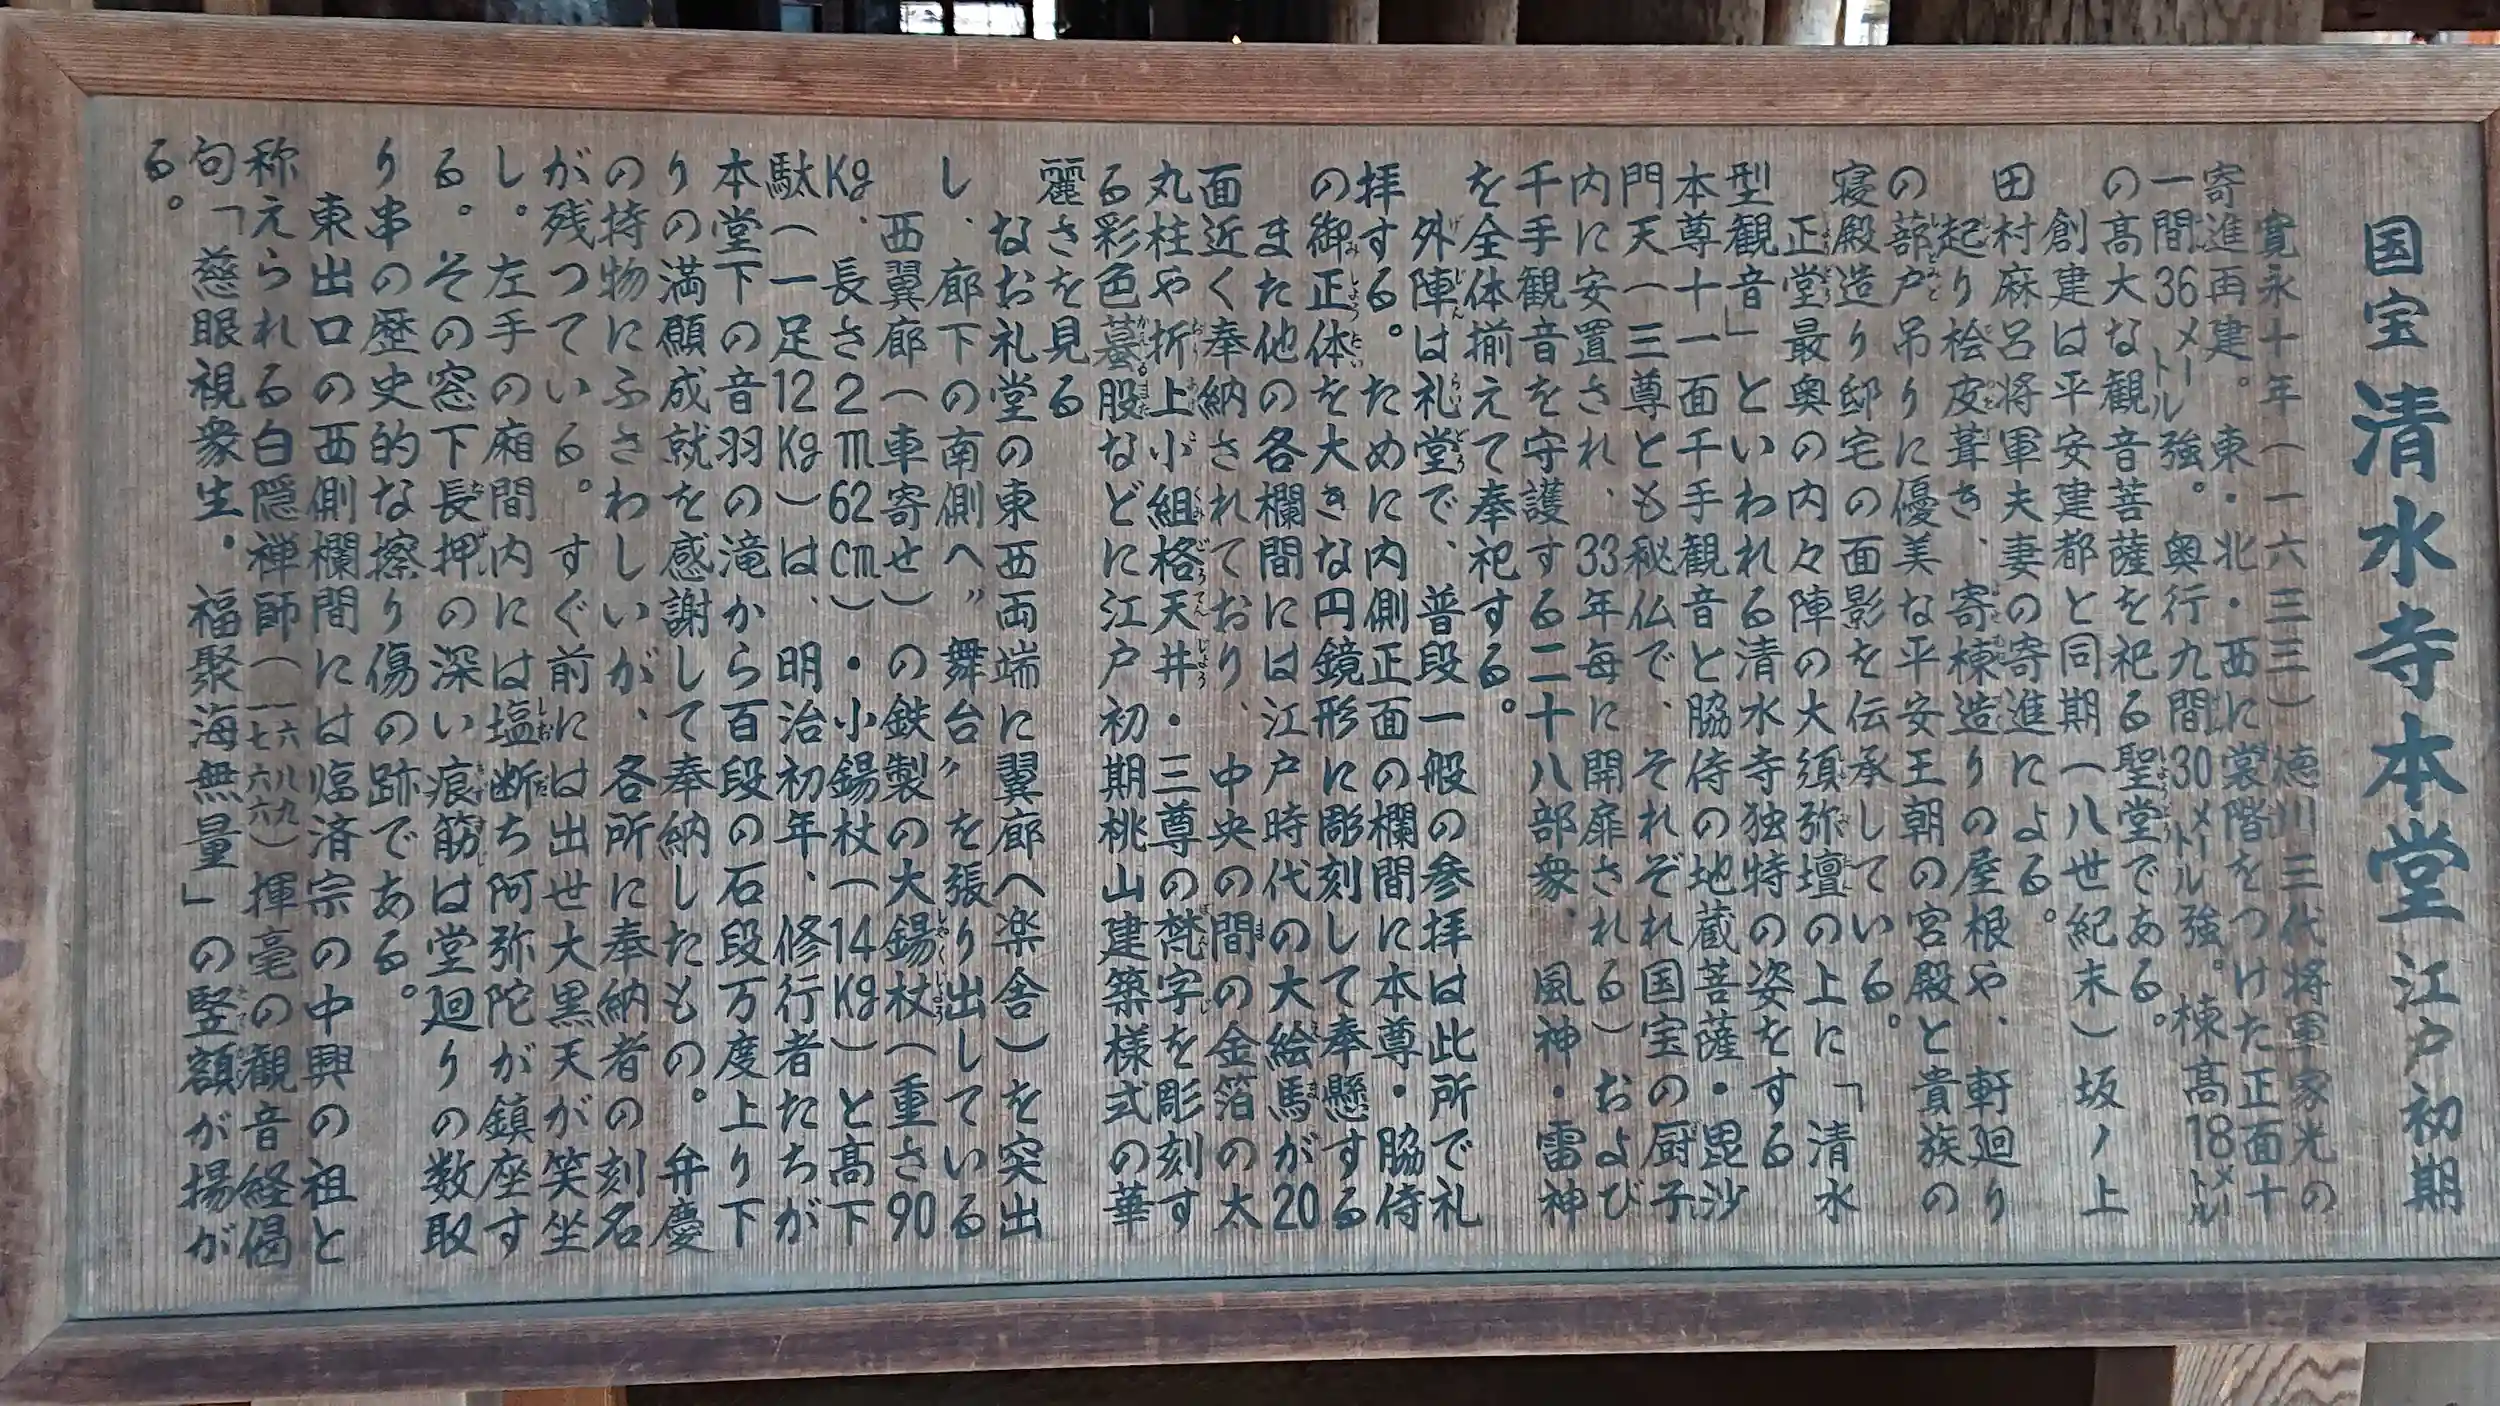 国宝 清水寺本堂 江戸初期
寛永十年（一六三三）徳川三代将軍家光の
寄進再建。東・北・西に裳階をつけた正面十
一間36メートル強。奥行九間30メートル強。棟高18メートル
の高大な観音菩薩を祀る聖堂である。
創建は平安建都と同期（八世紀末）坂ノ上
田村麻呂将軍夫妻の寄進による。
起り桧皮葺き、寄棟造りの屋根や、軒廻り
の蔀戸吊りに優美な平安王朝の宮殿と貴族の
寝殿造り邸宅の面影を伝承している。
正堂最奥の内々陣の大須弥壇の上に「清水
型観音」といわれる清水寺独特の姿をする
本尊十一面千手観音と脇侍の地蔵菩薩・毘沙
門天（三尊とも秘仏で、それぞれ国宝の厨子
内に安置され、33年毎に開扉される）および
千手観音を守護する二十八部衆、風神・雷神
を全体揃えて奉祀する。
外陣は礼堂で、普段一般の参拝は此所で礼
拝する。ために内側正面の欄間に本尊・脇侍
の御正体を大きな円鏡形に彫刻して奉懸する
また他の各欄間には江戸時代の大絵馬が20
面近く奉納されており、中央の間の金箔の太
丸柱や折上小組格天井・三尊の梵字を彫刻す
る彩色蟇股などに江戸初期桃山建築様式の華
麗さを見る
なお礼堂の東西両端に翼廊（楽舎）を突出
し、廊下の南側へ〝舞台〟を張り出している
西翼廊（車寄せ）の鉄製の大錫杖（重さ90
Kg、長さ2m62cm）・小錫杖（14Kg）と高下
駄（一足12Kg）は、明治初年、修行者たちが
本堂下の音羽の滝から百段の石段万度上り下
りの満願成就を感謝して奉納したもの。弁慶
の持物にふさわしいが、各所に奉納者の刻名
が残っている。すぐ前には出世大黒天が笑坐
し。左手の廂間内には塩断ち阿弥陀が鎮座す
る。その窓下長押の深い痕筋は堂廻りの数取
り串の歴史的な擦り傷の跡である。
東出口の西側欄間には臨済宗の中興の祖と
称えられる白隠禅師（一六八九｜一七六六）揮毫の観音経偈
句「慈眼視衆生・福聚海無量」の竪額が揚が
る。